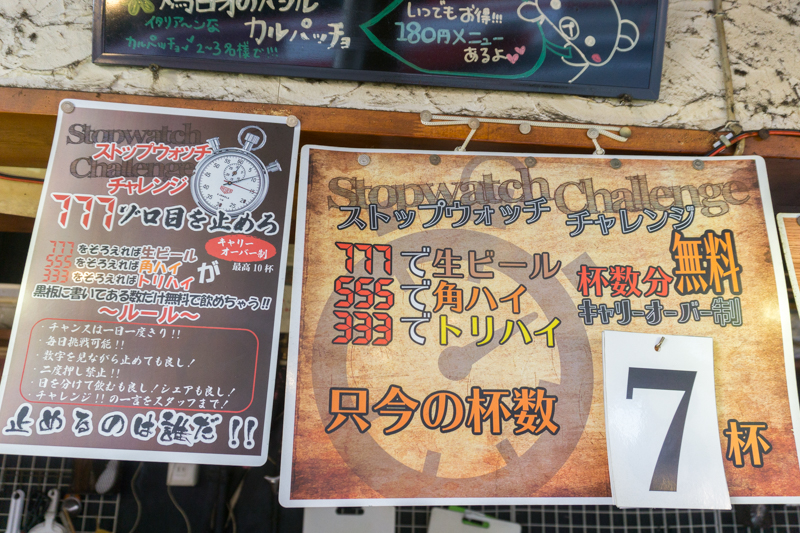 イタリア〜ンな
カルパッチョ
カルパッチョ 2〜3名様で!!!
いつでもお得!!!
180円メニュー
あるよ
Stopwatch
Challenge
ストップウォッチ
チャレンジ
777ゾロ目を止めろ
777をそろえれば生ビール
555をそろえれば角ハイ
333をそろえればトリハイ
が
キャリー
オーバー制
最高10杯
黒板に書いてある数だけ無料で飲めちゃう!!
〜ルール〜
・チャンスは一日一度きり!!
・毎日挑戦可能!!
・数字を見ながら止めても良し!
・二度押し禁止!!
・日を分けて飲むも良し!シェアも良し!
・チャレンジ!!の一言をスタッフまで!
止めるのは誰だ!!
Stopwatch Challenge
ストップウォッチ チャレンジ
777で生ビール
555で角ハイ
333でトリハイ
杯数分無料
キャリーオーバー制
只今の杯数
7杯